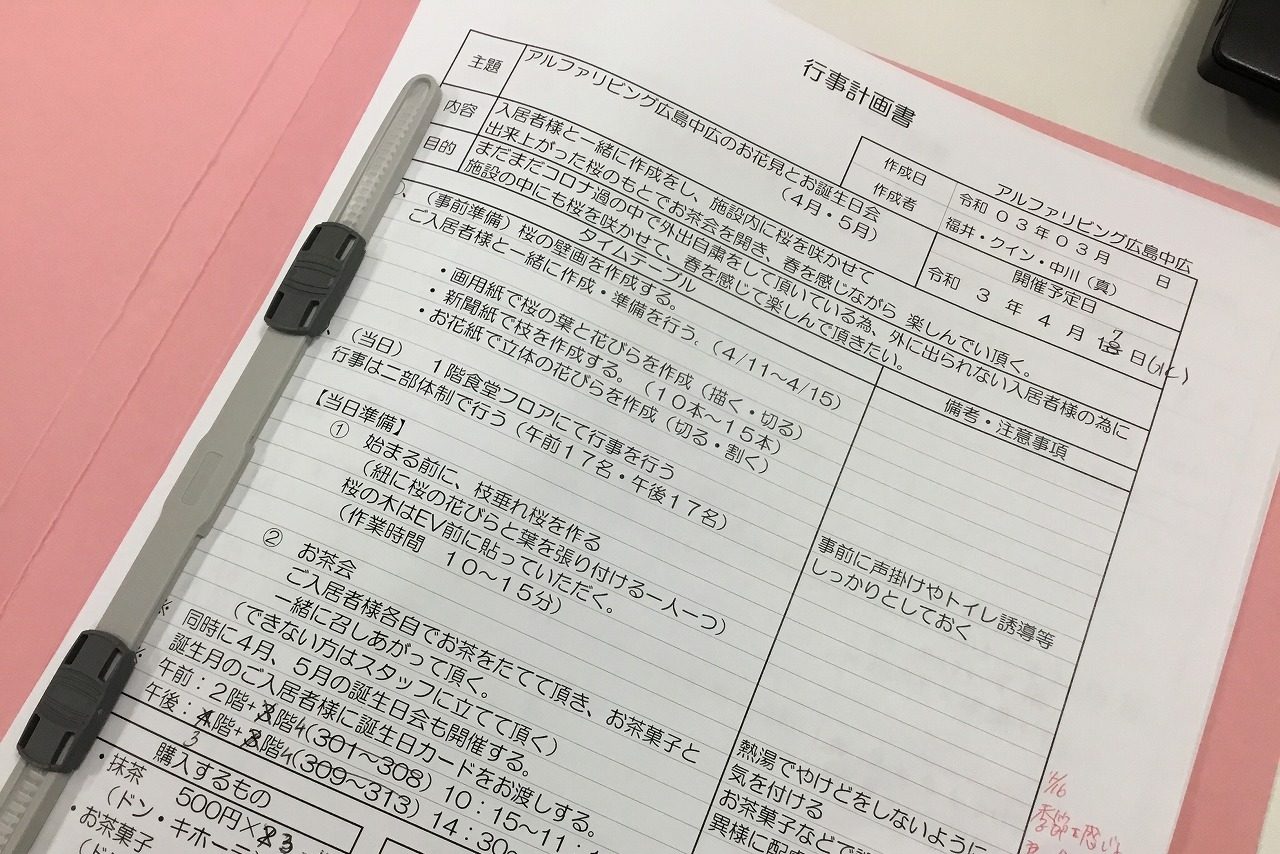 行事計画書
アルファリビング広島中広
主題
アルファリビング広島中広のお花見とお誕生日会
(4月・5月)
作成日
令和 03年 03月 日
作成者
福井・クイン・中川(真)
開催予定日
令和 3 年 4 月 日(水)
内容
入居者様と一緒に作成をし、施設内に桜を咲かせて
出来上がった桜のもとでお茶会を開き、春を感じながら 楽しんでい頂く。
目的
まだまだコロナ過の中で外出自粛をして頂いている為、外に出られない入居者様の為に
施設の中にも桜を咲かせて、春を感じて楽しんで頂きたい。
タイムテーブル
備考・注意事項
(事前準備)桜の壁画を作成する。
ご入居者様と一緒に作成・準備を行う。(4/11~4/15)
・画用紙で桜の葉と花びらを作成(描く・切る)
・新聞紙で枝を作成する。(10本~15本)
・お花紙で立体の花びらを作成(切る・割く)
(当日) 1階食堂フロアにて行事を行う
行事は二部体制で行う(午前17名・午後17名)
【当日準備】
① 始まる前に、枝垂れ桜を作る
(紐に桜の花びらと葉を張り付ける一人一つ)
桜の木はEV前に貼っていただく。
(作業時間 10~15分)
事前に声掛けやトイレ誘導等
しっかりとしておく
② お茶会
ご入居者様各自でお茶をたてて頂き、お茶菓子と
一緒に召しあがって頂く。
(できない方はスタッフに立てて頂く)
※ 同時に4月、5月の誕生日会も開催する。
誕生月のご入居者様に誕生日カードをお渡しする。
※ 午前:2階+階(301~308)10:15~11:
午後:3階+階(309~313)14:30
熱湯でやけどをしないように
気を付ける
お茶菓子などで
異様に配
購入するもの
・抹茶 500円×3
(ドン・キホーテ
・お茶菓子